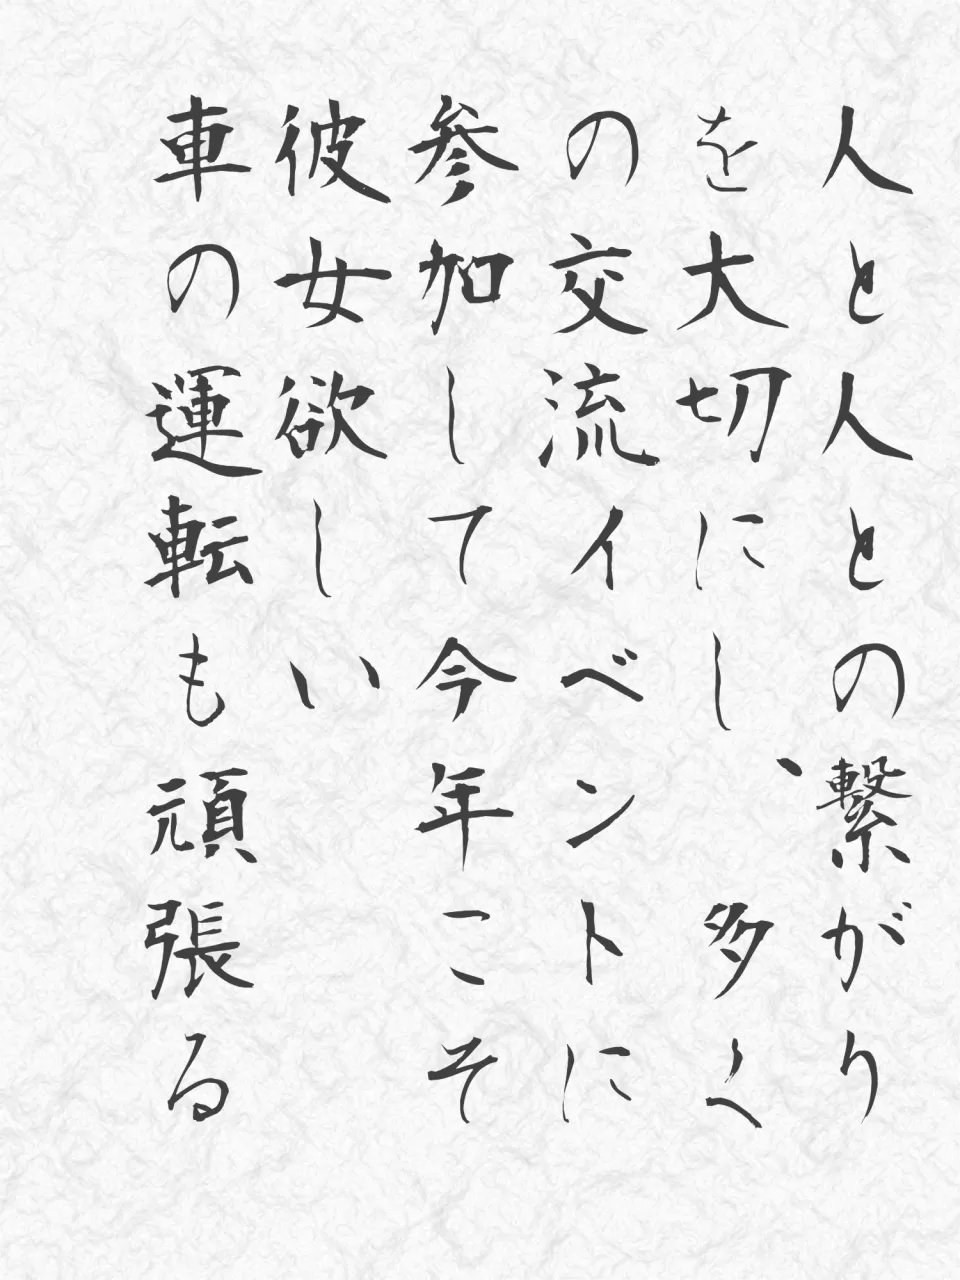 人と人との繋がり
を大切にし、多く
の交流イベントに
参加して今年こそ
彼女欲しい
車の運転も頑張る